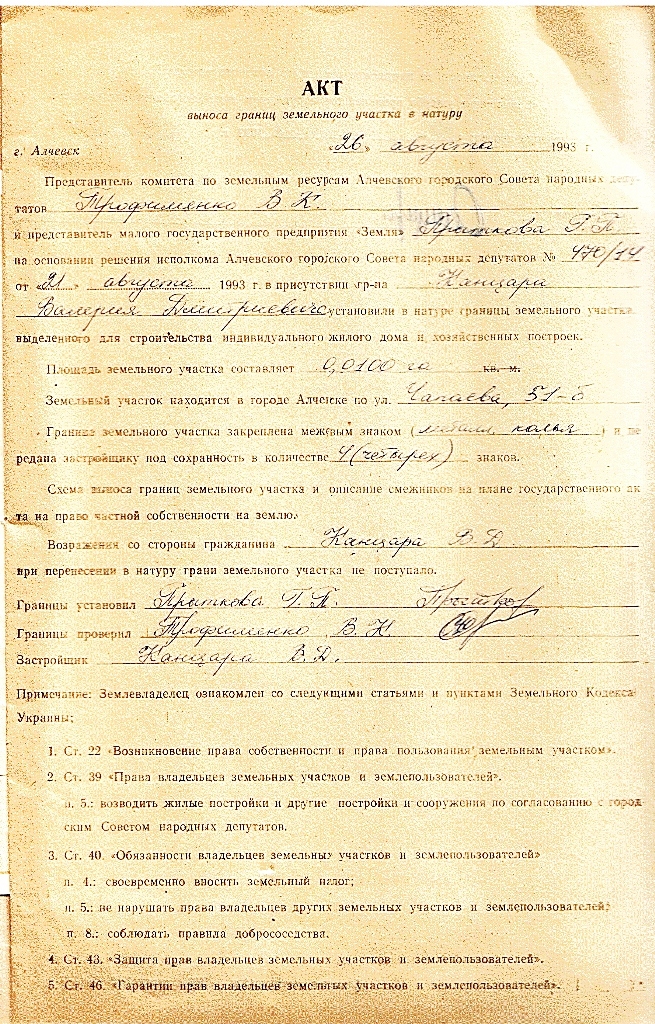 АКТ
выноса границ земельного участка в натуру
г. Алчевск «26» августа 1993 г.
Представитель комитета по земельным ресурсам Алчевского городского Совета народных депу-
татов Трофименко В. К.
и представитель малого государственного предприятия «Земля» Прыткова Г. П.
на основании решения исполкома Алчевского городского Совета народных депутатов № 470/14
от «21» августа 1993 г. в присутствии гр-на Канцара
Валерия Дмитриевича установили в натуре границы земельного участка,
выделенного для строительства индивидуального жилого дома и хозяйственных построек.
Площадь земельного участка составляет 0,0100 га кв. м.
Земельный участок находится в городе Алчевске по ул. Чапаева, 51-б
Граница земельного участка закреплена межевым знаком (металл. колья) и пе
редана застройщику под сохранность в количестве 4 (четырех) знаков.
Схема выноса границ земельного участка и описание смежников на плане государственного ак
та на право частной собственности на землю.
Возражения со стороны гражданина Канцара В. Д
при перенесении в натуру грани земельного участка не поступало.
Границы установил Прыткова Г. П.
Границы проверил Трофименко В. К.
Застройщик Канцара В. Д.
Примечание: Землевладелец ознакомлен со следующими статьями и пунктами Земельного Кодекса
Украины:
1. Ст. 22 «Возникновение права собственности и права пользования земельным участком».
2. Ст. 39 «Права владельцев земельных участков и землепользователей».
п. 5.: возводить жилые постройки и другие постройки и сооружения по согласованию с город-
ским Советом народных депутатов.
3. Ст. 40. «Обязанности владельцев земельных участков и землепользователей»
п. 4.: своевременно вносить земельный налог;
п. 5.: не нарушать права владельцев других земельных участков и землепользователей;
п. 8.: соблюдать правила добрососедства.
4. Ст. 43. «Защита прав владельцев земельных участков и землепользователей».
5. Ст. 46. «Гарантии прав владельцев земельных участков и землепользователей».